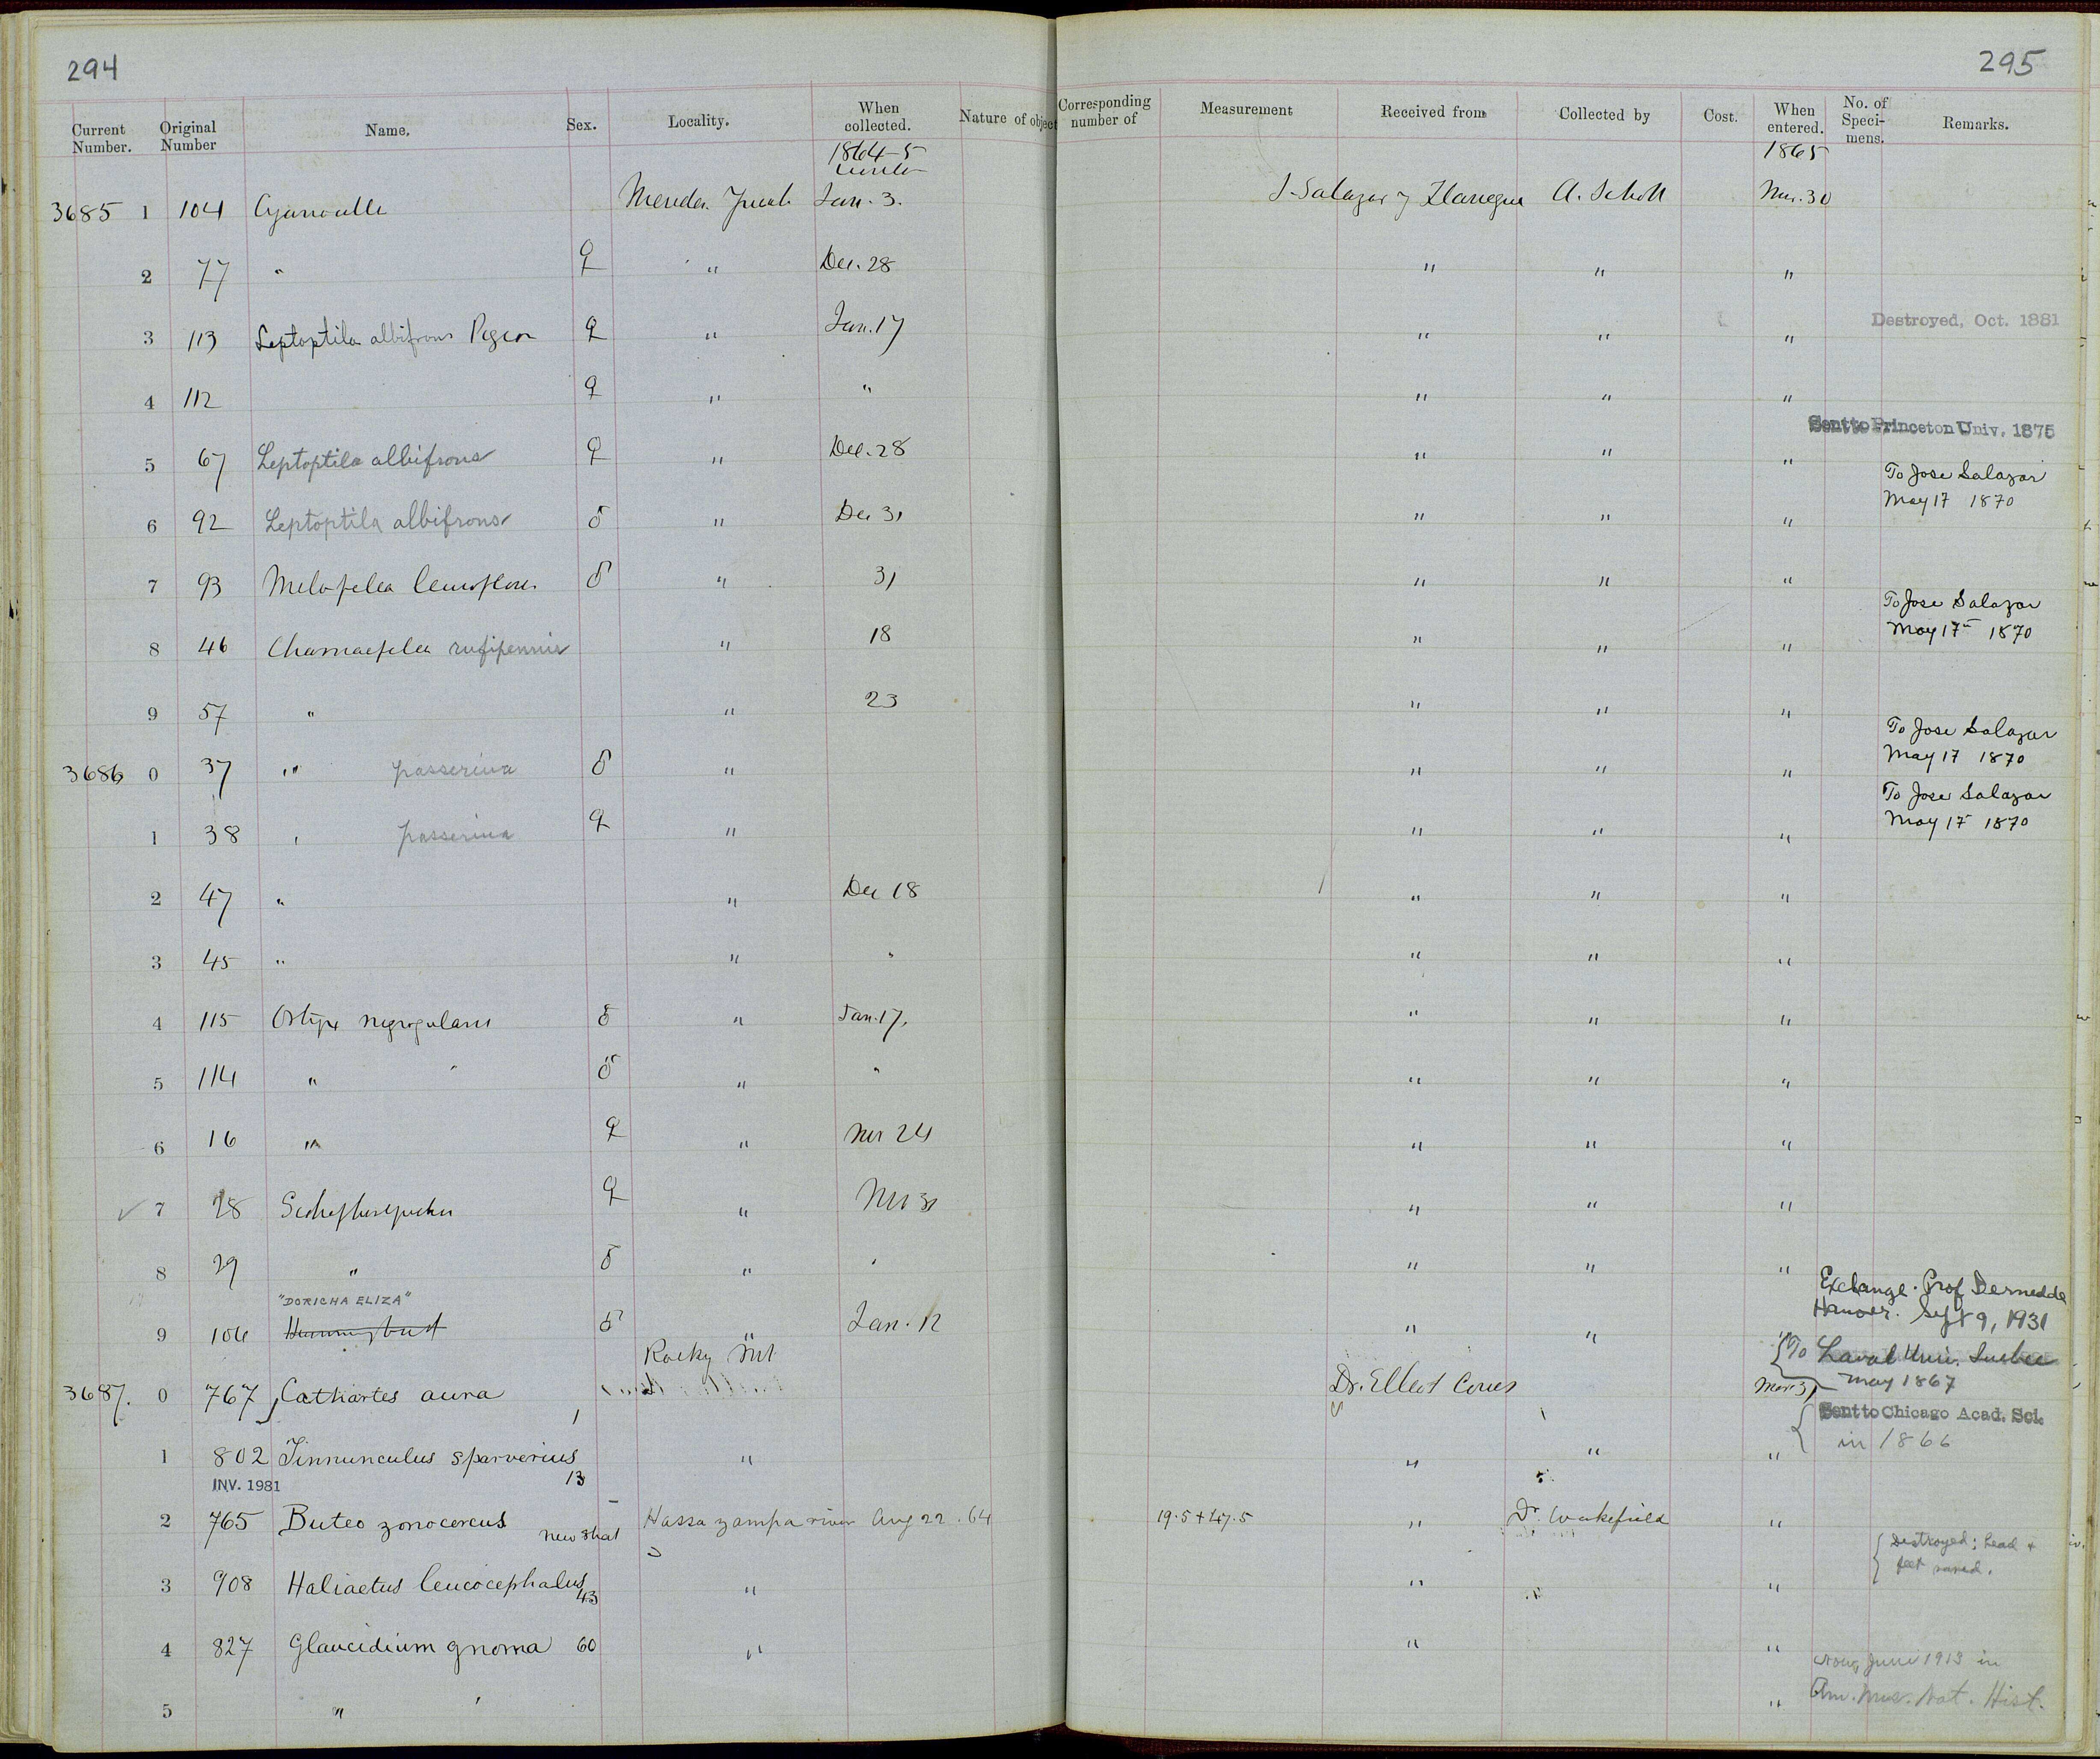 294
295
Current Number. Original Number Name. Sex. Locality. When collected. Nature of object
Corresponding number of Measurement Received from Collected by Cost. When entered. No. of Specimens. Remarks.
1864-5 1865
3685 1 104 Merida Jan. 3. A. Schott Mar. 30
2 77 " ♀ " Dec. 28 " " "
3 113 Leptoptila albifrons Pigeon ♀ " Jan. 17 " " " Destroyed, Oct. 1881
4 112 ♀ " " " " "
Sent to Princeton Univ. 1875
5 67 Leptoptila albifrons ♀ " Dec. 28 " " "
To Jose Salazar
May 17 1870
6 92 Leptoptila albifrons ♂ " Dec 31 " " "
7 93 Melopelea ♂ " 31 " " "
To Jose Salazar
May 17 1870
8 46 Chamaepelea rufipennis " 18 " " "
9 57 " " 23 " " "
To Jose Salazar
May 17 1870
3686 0 37 " passerina ♂ " " " "
To Jose Salazar
May 17 1870
1 38 " passerina ♀ " " " "
2 47 " " Dec 18 " " "
3 45 " " " " " "
4 115 Ortyx nigrogularis ♂ " Jan. 17. " " "
5 114 " " ♂ " " " " "
6 16 " ♀ " Nov 24 " " "
7 28 ♀ " " " "
8 29 " ♂ " " " " "
"DORICHA ELIZA"
Exchange. Prof Dernedde
Hanover. Sept 9, 1931
9 106 Hummingbird ♂ " Jan. 12 " " "
Rocky Mt
To Laval Univ. Quebec
May 1867
3687. 0 767 Cathartes aura 1 Dr. Elliot Coues Mar. 31
Sent to Chicago Acad. Sci.
in 1866
1 802 Tinnunculus sparverius 13 " " " "
INV. 1981
2 765 Buteo zonocercus new shat Hassayampa river Aug 22. 64 19.5 + 47.5 " Dr. Wakefield "
Destroyed; head +
feet saved.
3 908 Haliaetus leucocephalus 43 " " "
4 827 Glaucidium gnoma 60 " " "
Now, June 1913 in
Am. Mus. Nat. Hist.
5 " " "